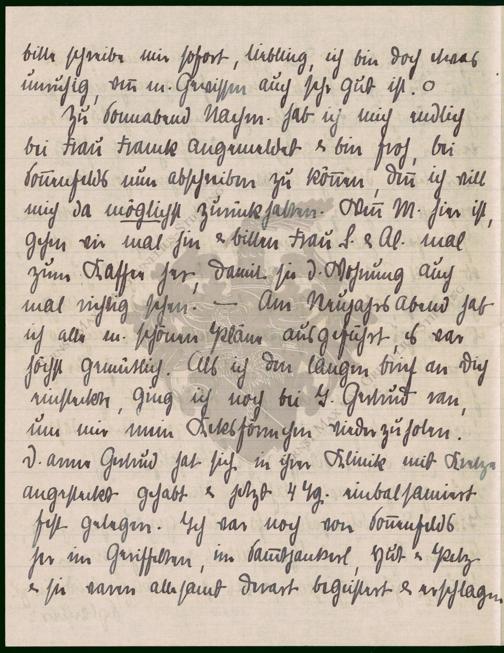 bitte schreibe mir sofort, Liebling, ich bin doch etwas
unruhig, wenn m. Gewissen auch sehr gut ist. o
Zu Sonnabend Nachm. hab ich mich endlich
bei Frau Franck angemeldet & bin froh, bei
Sonnenfelds nun abschreiben zu können, denn ich will
mich da möglichst zurückhalten. Wenn M. hier ist,
gehen wir mal hin & bitten Frau S. & Al. mal
zum Kaffee her, damit sie d. Wohnung auch
mal richtig sehen. — Am Neujahrs Abend hab
ich alle m. schönen Pläne ausgeführt es war
höchst gemütlich. Als ich den langen Brief an Dich
einsteckte, ging ich noch bei Gertrud ran,
um mir mein Keksförmchen wiederzuholen.
D. arme Gertrud hat sich in ihrer Klinik mit Krätze
angesteckt gehabt & jetzt 4 Tg. einbalsamiert
fest gelegen. Ich war noch von Sonnenfelds
her im Gestreiften, im Samtjankerl, Hut & Pelz
& sie waren allesamt derart begeistert & erschlagen